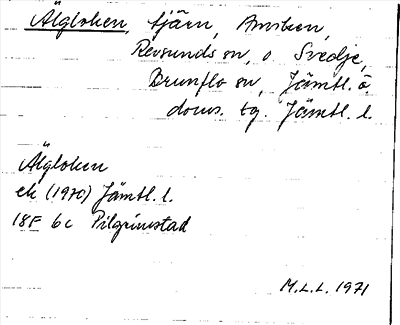 Älgloken, tjärn, Ansiken,
Revsunds sn, o. Svedje,
Brunflo sn, Jämtl. ö.
doms. tg. Jämtl. l.
Älgloken
ek (1970) Jämtl. l.
18F 6c Pilgrimstad
M.L.L. 1971